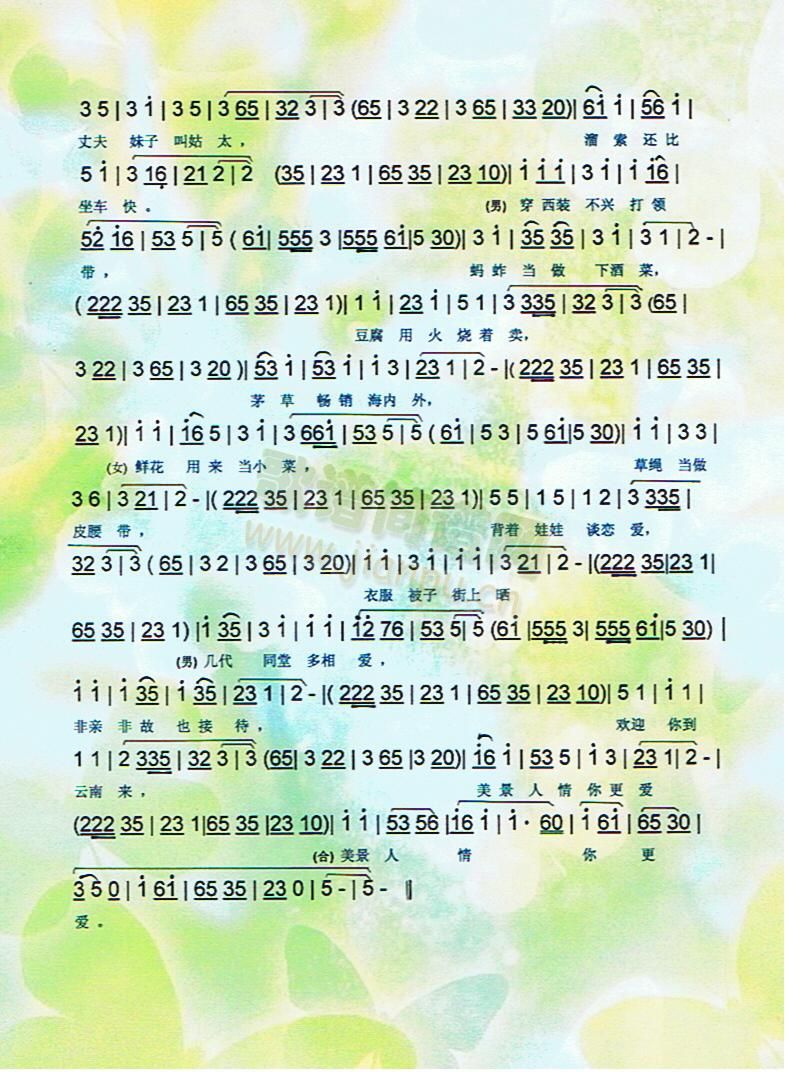 3 5 | 3 i | 3 5 | 3 65 | 32 3 | 3 (65 | 3 22 | 3 65 | 33 20) | 6i i | 56 i |
丈夫 妹子 叫姑 太， 溜 索 还比
5 i | 3 16 | 21 2 | 2 (35 | 23 1 | 65 35 | 23 10) | i i i | 3 i | i i6 |
坐车 快。 (男) 穿 西装 不兴 打 领
52 i6 | 53 5 | 5 ( 6i | 555 3 | 555 6i | 5 30) | 3 i | 35 35 | 3 i | 3 1 | 2 - |
带， 蚂 蚱 当 做 下酒 菜，
( 222 35 | 23 1 | 65 35 | 23 1) | 1 i | 23 i | 5 1 | 3 335 | 32 3 | 3 (65 |
豆腐 用 火 烧 着 卖，
3 22 | 3 65 | 3 20 ) | 53 i | 53 i | i 3 | 23 1 | 2 - | ( 222 35 | 23 1 | 65 35 |
茅 草 畅 销 海内 外，
23 1) | i i | i6 5 | 3 i | 3 66i | 53 5 | 5 ( 6i | 5 3 | 5 6i | 5 30) | i i | 3 3 |
(女) 鲜花 用 来 当小 菜， 草绳 当做
3 6 | 3 21 | 2 - | ( 222 35 | 23 1 | 65 35 | 23 1) | 5 5 | 1 5 | 1 2 | 3 335 |
皮腰 带， 背着 娃娃 谈恋 爱，
32 3 | 3 ( 65 | 3 2 | 3 65 | 32 20) | i i | 3 i | i i | 3 21 | 2 - | (222 35 | 23 1 |
衣服 被子 街上 晒
65 35 | 23 1 ) | i 35 | 3 i | i i | i2 76 | 53 5 | 5 (6i | 555 3 | 555 6i | 5 30) |
(男) 几代 同堂 多相 爱，
i i | i 35 | i 35 | 23 1 | 2 - | ( 222 35 | 23 1 | 65 35 | 23 10) | 5 1 | i 1 |
非亲 非故 也接 待， 欢迎 你到
1 1 | 2 335 | 32 3 | 3 (65 | 3 22 | 3 65 | 3 20) | i6 i | 53 5 | i 3 | 23 1 | 2 - |
云南 来， 美 景 人 情 你 更 爱
(222 35 | 23 1 | 65 35 | 23 10) | i i | 53 56 | i6 i | i · 60 | i 6i | 65 30 |
(合) 美景 人 情 你 更
3 5 0 | i 6i | 65 35 | 23 0 | 5 - | 5 - ‖
爱。
歌谱简谱网
www.jianpu.cn